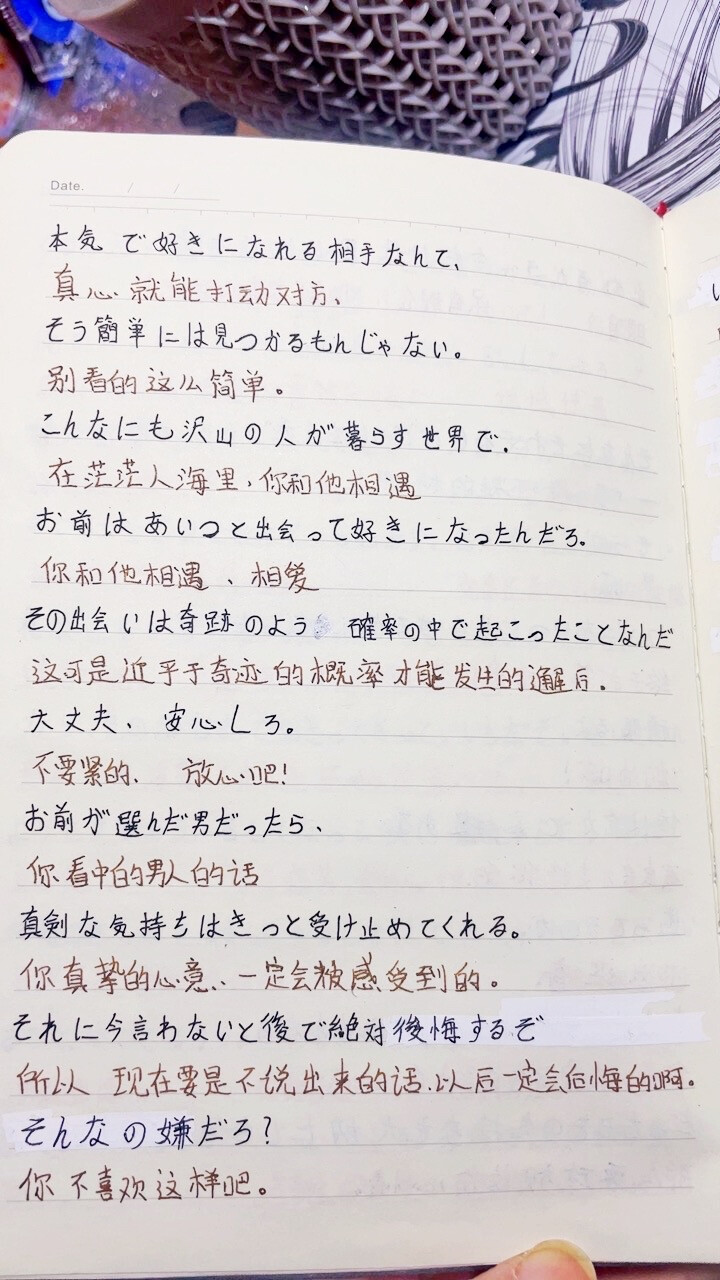 Date. / /
本気で好きになれる相手なんて、
真心就能打动对方、
そう簡単には見つかるもんじゃない。
别看的这么简单。
こんなにも沢山の人が暮らす世界で.
在茫茫人海里,你和他相遇
お前はあいつと出会って好きになったんだろ。
你和他相遇、相爱
その出会いは奇跡のよう 確率の中で起こったことなんだ
这可是近乎于奇迹的概率才能发生的邂逅.
大丈夫、安心しろ。
不要紧的、放心吧!
お前が選んだ男だったら、
你看中的男人的话
真剣な気持ちはきっと受け止めてくれる。
你真挚的心意、一定会被感受到的。
それに今言わないと後で絶対後悔するぞ
所以 现在要是不说出来的话.以后一定会后悔的啊。
そんなの嫌だろ?
你不喜欢这样吧。